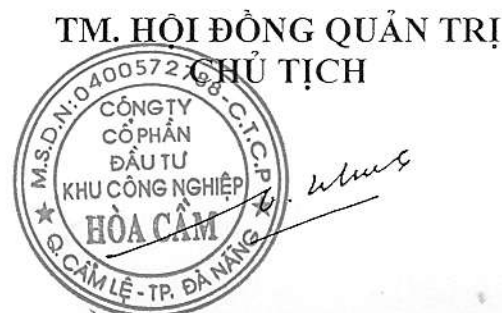 TM. HỘI ĐỒNG QUẢN TRỊ
CHỦ TỊCH
M.S.D.N: 0400572788-C.T.C.P
CÔNG TY
CỔ PHẦN
ĐẦU TƯ
KHU CÔNG NGHIỆP
HÒA CẦM
Q. CẨM LỆ - TP. ĐÀ NẴNG